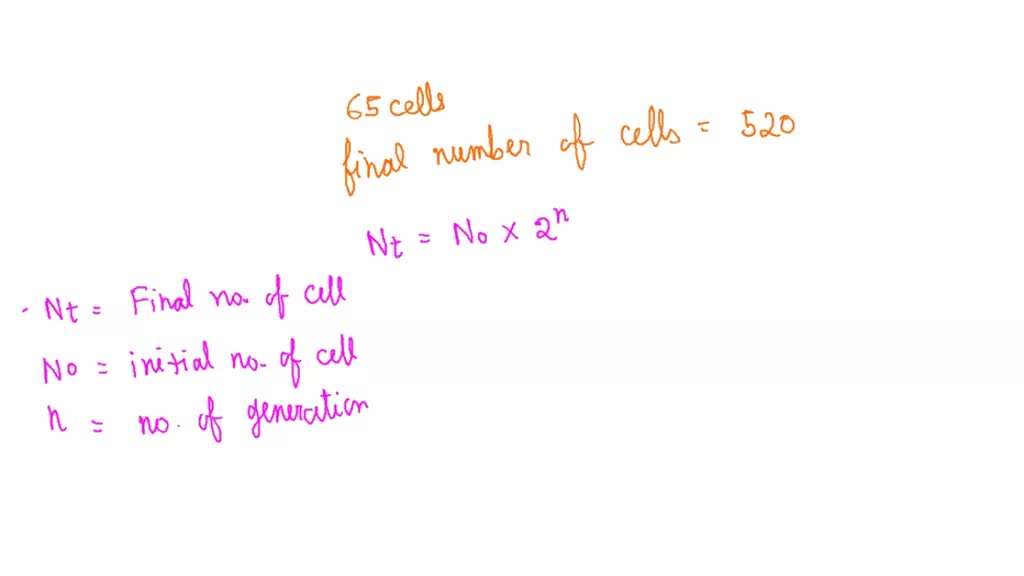 65 cells
final number of cells = 520
Nt = No × 2ⁿ
Nt = Final no. of cell
No = initial no. of cell
n = no. of generation